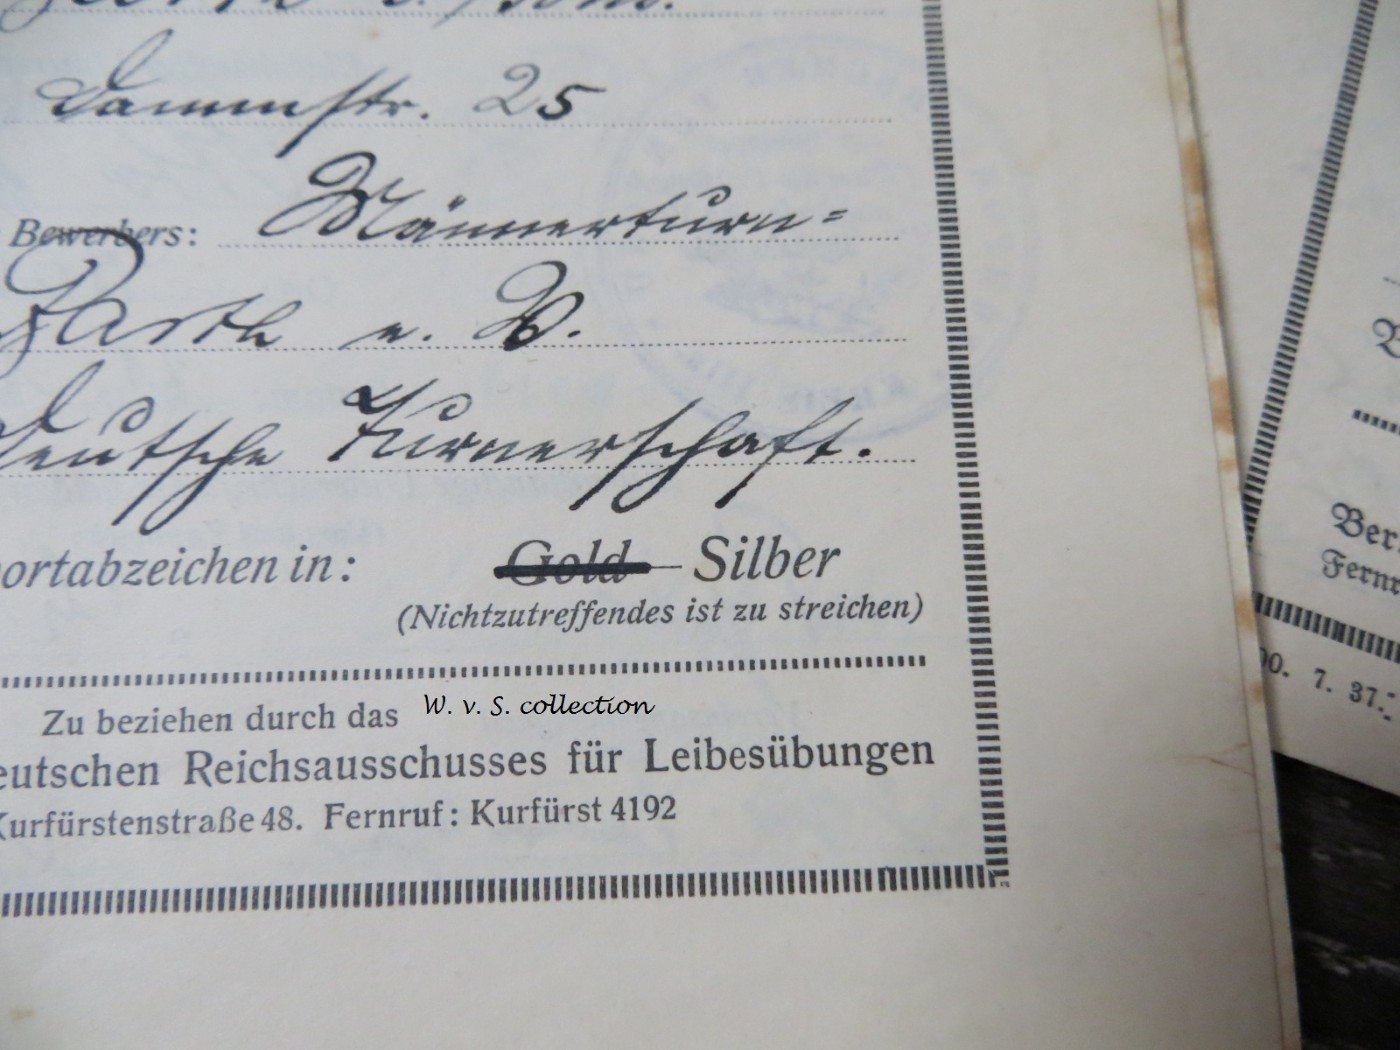 Dammstr. 25
Bewerbers: Männerturn=
Barth e. V.
Deutsche Turnerschaft.
ortabzeichen in: Gold — Silber
(Nichtzutreffendes ist zu streichen)
Zu beziehen durch das
W. v. S. collection
eutschen Reichsausschusses für Leibesübungen
Kurfürstenstraße 48. Fernruf: Kurfürst 4192
Ber
Fernr
00. 7. 37.